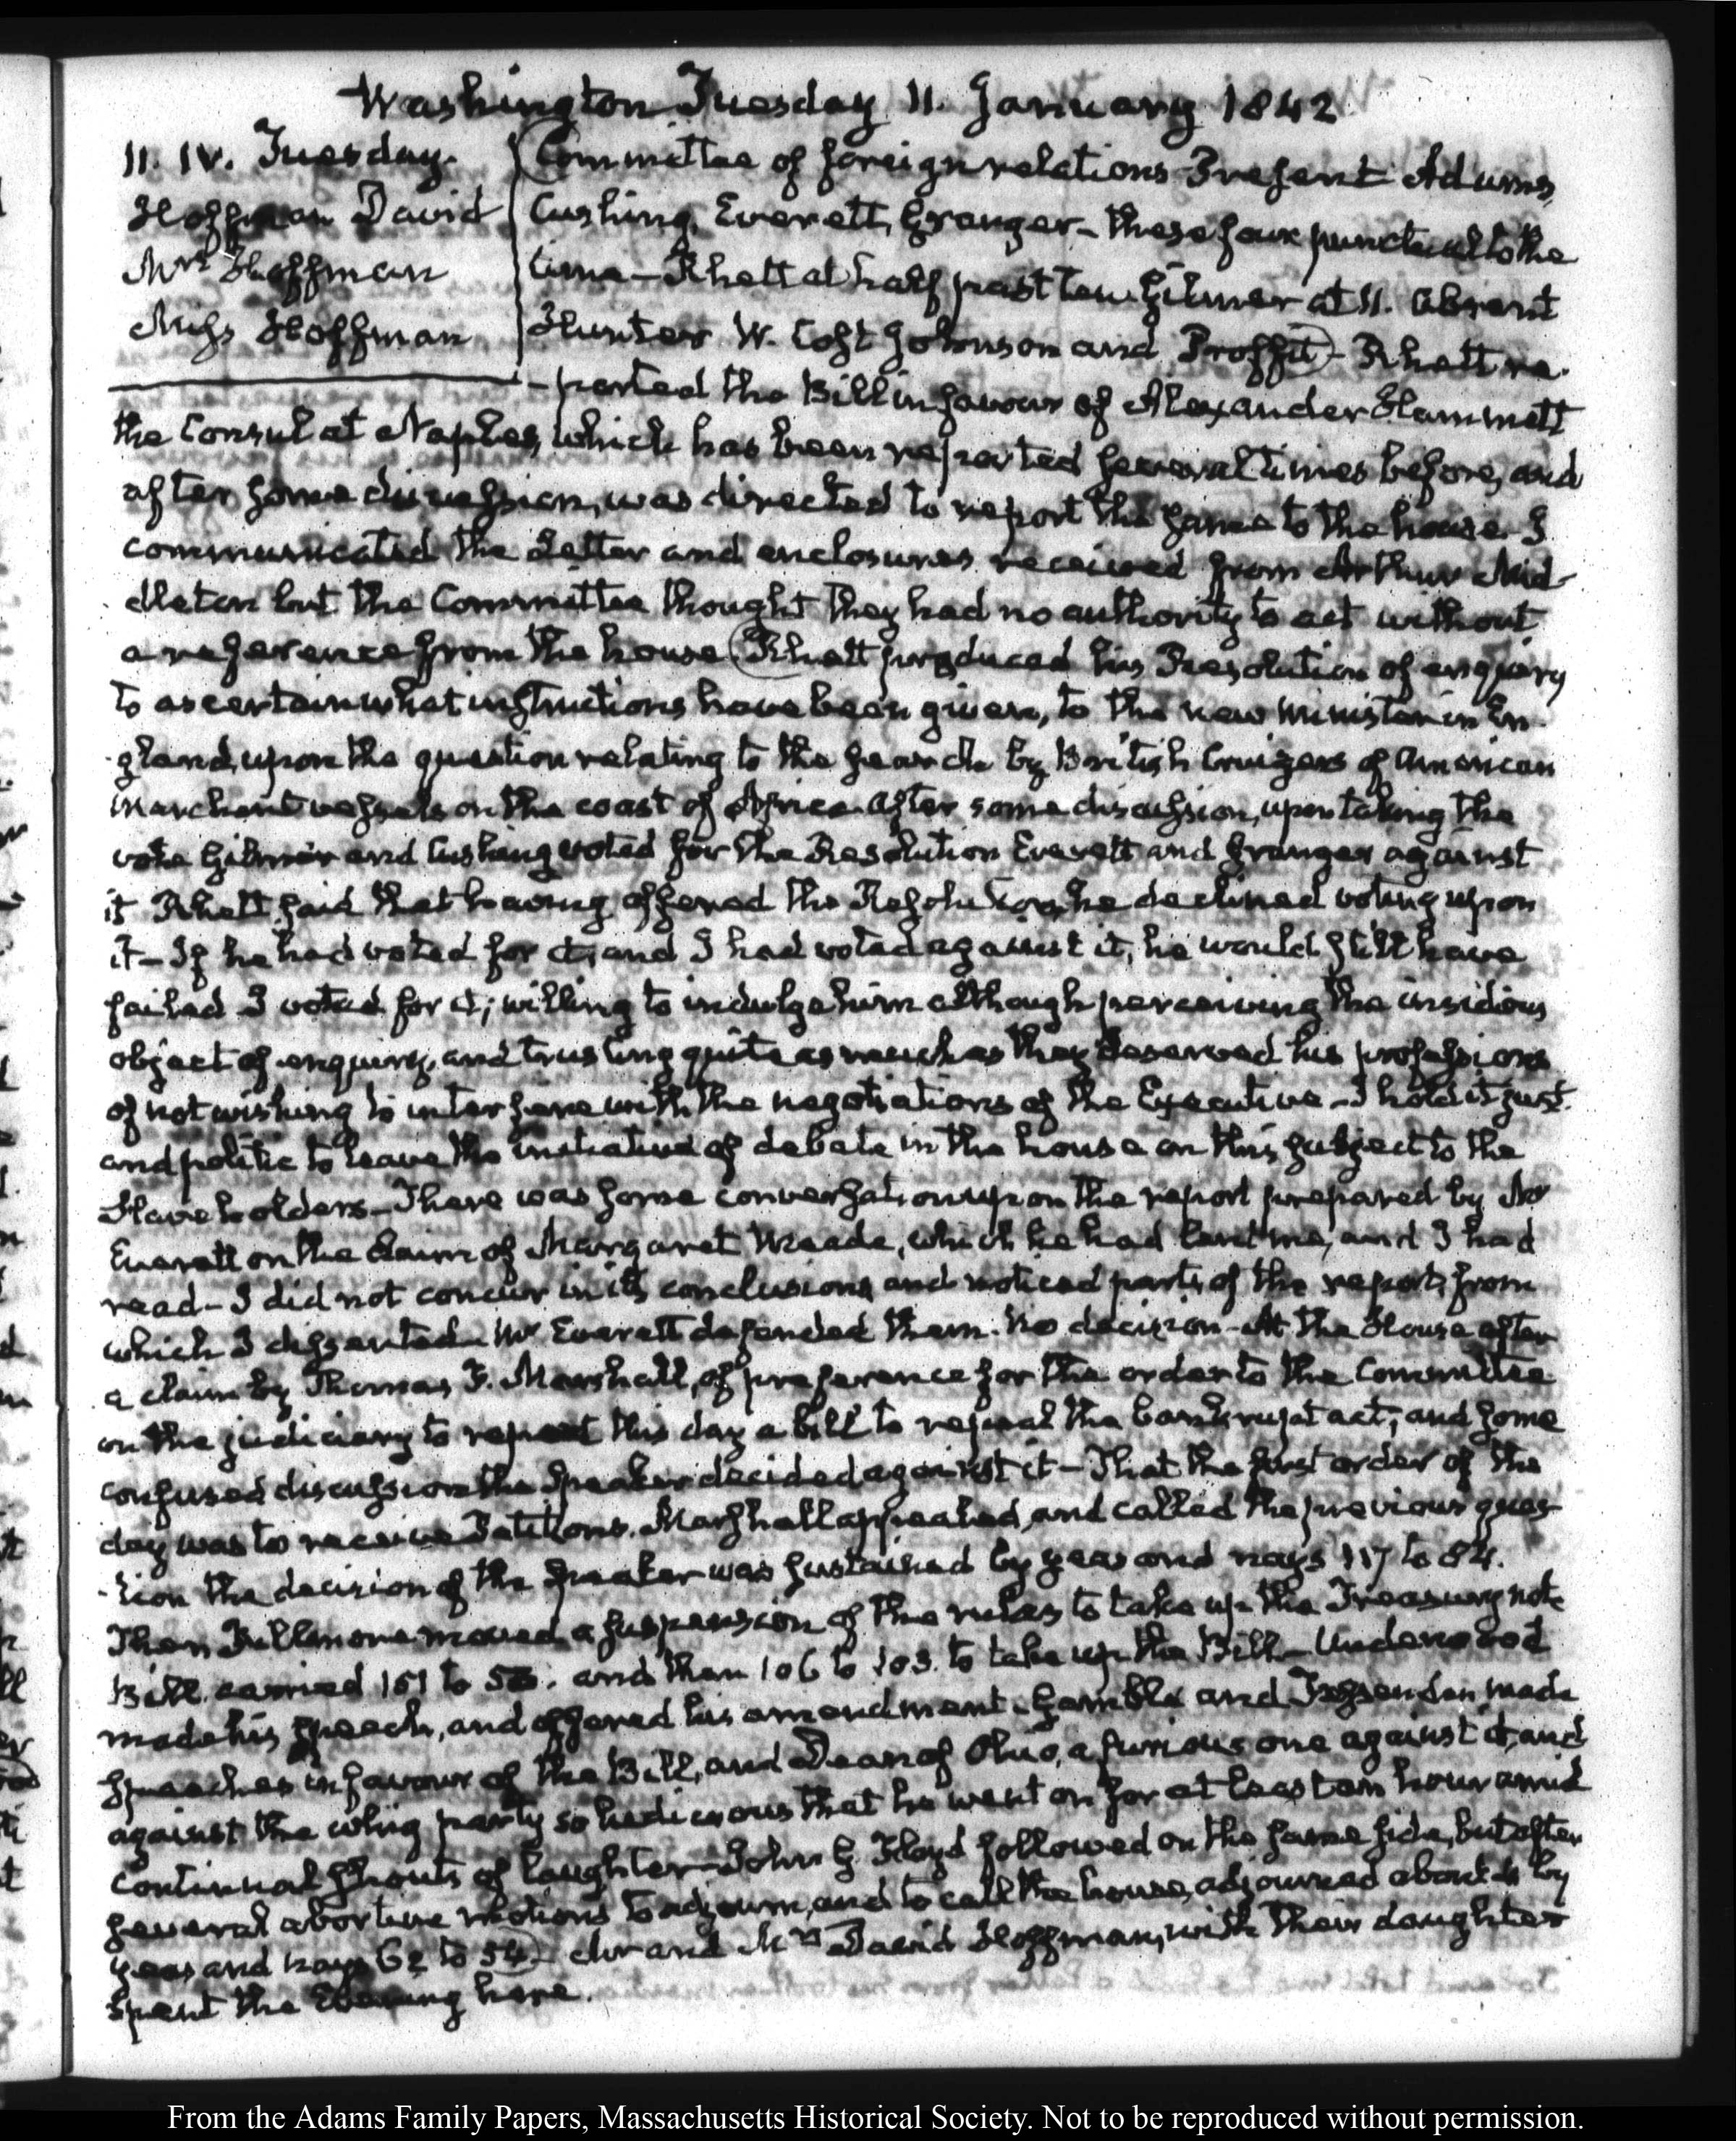 Washington Tuesday 11. January 1842
11. IV. Tuesday.
Hoffman David
Mrs Hoffman
Miss Hoffman
Committee of foreign relations Present Adams,
Cushing, Everett, Granger – these four punctual to the
time – Rhett at half past ten Gilmer at 11. absent
Hunter W. Cost Johnson and Proffit – Rhett re-
-ported the Bill in favour of Alexander Hammett
the Consul at Naples, which has been reported several times before, and
after some discussion, was directed to report the same to the house. I
communicated the Letter and enclosures received from Arthur Mid-
dleton but the Committee thought they had no authority to act without
a reference from the house Rhett produced his Resolution of enquiry
to ascertain what instructions have been given, to the new minister in En-
-gland, upon the question relating to the search by British Cruizers of American
merchant vessels on the coast of Africa. After some discussion, upon taking the
vote Gilmer and Cushing voted for the Resolution Everett and Granger against
it Rhett said that having offered the Resolution, he declined voting upon
it – If he had voted for it, and I had voted against it, he would still have
failed I voted for it; willing to indulge him although perceiving the insidious
object of enquiry, and trusting quite as much as they deserved his professions
of not wishing to interfere with the negotiations of the Executive – I hold it just
and politic to leave the initiative of debate in the house on this subject to the
Slaveholders – There was some conversation upon the report prepared by Mr
Everett on the claim of Margaret Meade, which he had lent me, and I had
read – I did not concur in its conclusions and noticed parts of the report, from
which I dissented – Mr Everett defended them. No decision – At the House after
a claim by Thomas F. Marshall, of preference for the order to the Committee
on the judiciary to report this day a bill to repeal the bankrupt act, and some
confused discussion the Speaker decided against it – That the first order of the
day was to receive Petitions. Marshall appealed, and called the previous ques-
-tion the decision of the Speaker was sustained by yeas and nays 117 to 84.
Then Fillmore moved a suspension of the rules to take up the Treasury note
Bill. carried 151 to 53. and then 106 to 103. to take up the Bill – Underwood
made his speech, and offered his amendment – Gamble and Fessenden made
speeches in favour of the Bill, and Dean of Ohio, a furious one against it, and
against the whig party so ludicrous that he went on for at least an hour amid
continual shouts of laughter – John G. Floyd followed on the same side, but after
several abortive motions to adjourn, and to call the house, adjourned about 4 by
yeas and nays 62 to 54 – Mr and Mrs David Hoffman, with their daughter
spent the Evening here.
From the Adams Family Papers, Massachusetts Historical Society. Not to be reproduced without permission.